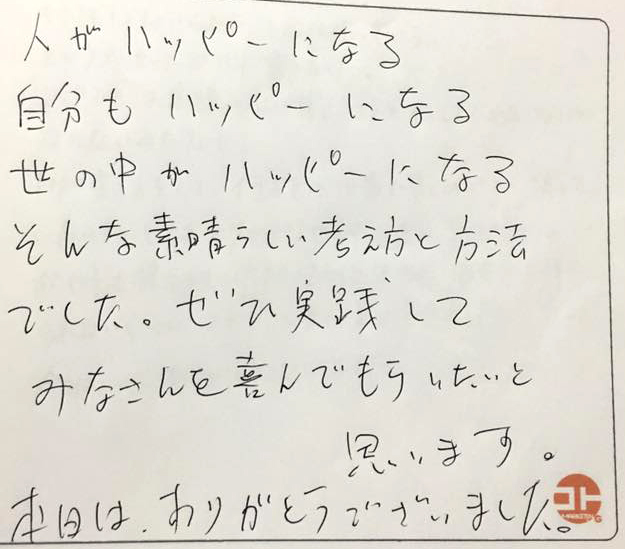 人がハッピーになる
自分もハッピーになる
世の中がハッピーになる
そんな素晴らしい考え方と方法
でした。ぜひ実践して
みなさんを喜んでもらいたいと
思います。
本日は、ありがとうございました。
コト